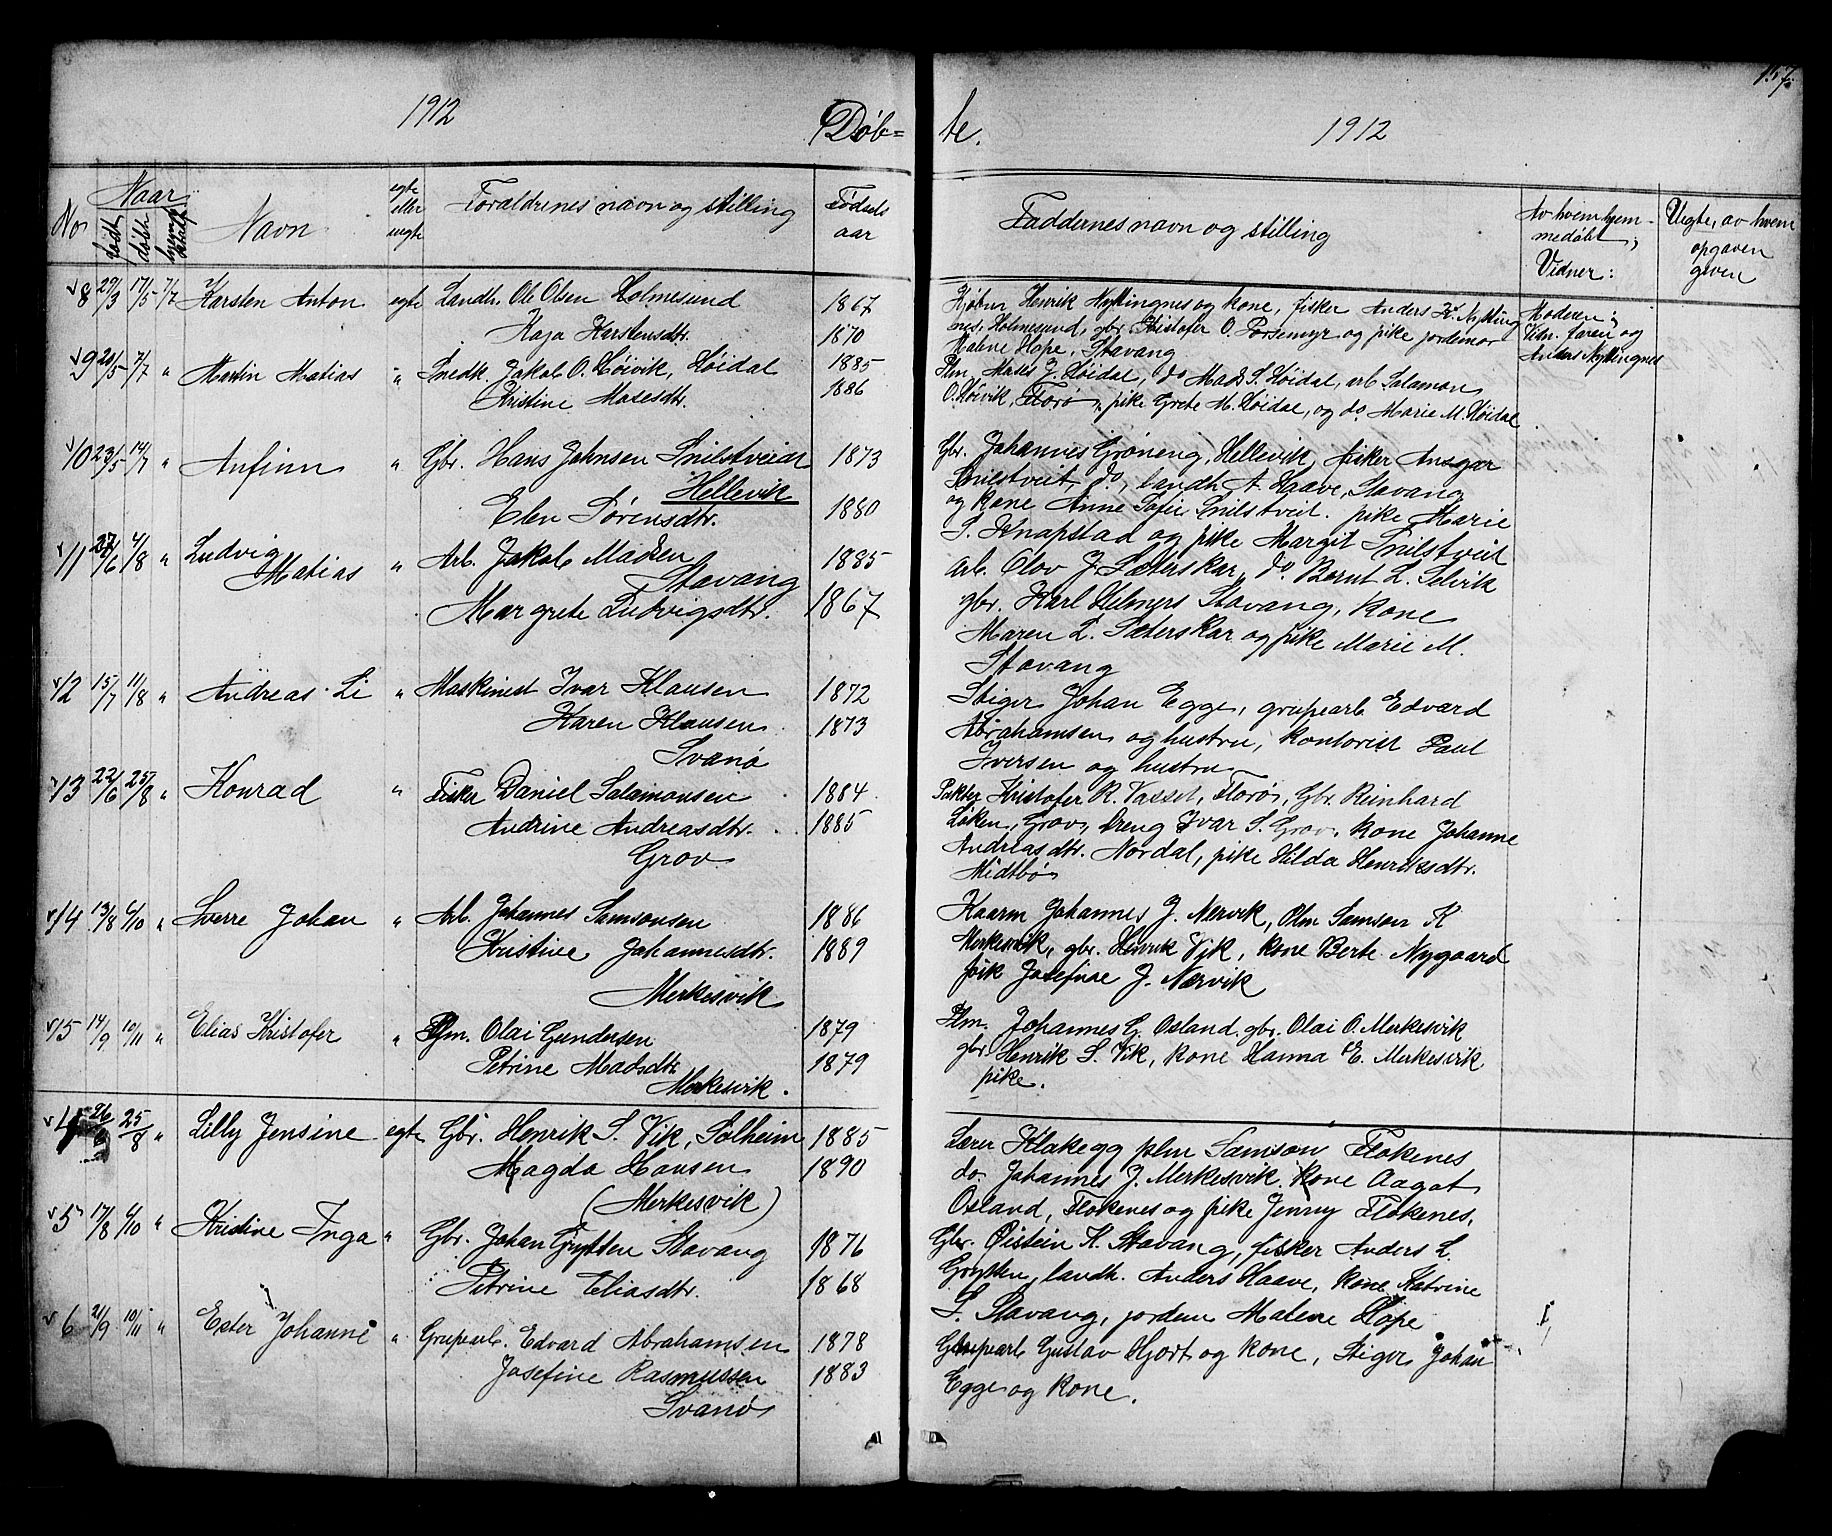 157.
1912 Døb= te. 1912
No Naar født døbt hjemmedøbt Navn egte eller uegte Forældrenes navn og stilling Fødsels aar Faddernes navn og stilling Av hvem hjem-medøbt, Vidner: Uegte, av hvem opgaven given
8 29/3 17/5 7/7 Karsten Anton egte Landh. Ole Olsen Holmesund 1867
Kaja Karstensdtr. 1870
Henrik Nyttingnes og kone, fisker Anders Kr. Nytting
nes, Holmesund, gbr. Kristofer O. Porsemyr og pike jordemor
Malene Hope, Stavang
Moderen;
Vidn. faren og
Anders Nyttingnes
9 20/5 7/7 " Martin Matias " Snedk. Jakob O. Høivik, Høidal 1885
Kristine Mosesdtr. 1886
Plm. Moses J. Høidal, do Mads S. Høidal, arb Salamon
O. Høivik, Florø, pike Grete M. Høidal, og do Marie M. Høidal
10 23/5 14/7 " Anfinn " Gbr. Hans Johnsen Snilstveit
Hellevik 1873
Elen Sørensdtr. 1880
Gbr. Johannes Grøneng, Hellevik, fisker Ansgar
Snilstveit, do, landh A. Haave, Stavang
og kone Anne Sofie Snilstveit. pike Marie
S. Knapstad og pike Margit Snilstveit
11 27/6 4/8 " Ludvig Matias " Arb. Jakob Madsen 1885
Stavang
Margrete Ludvigsdtr. 1867
Arb. Olov J. Sæterskar, do. Bernt L. Selvik
gbr. Karl Helmers Stavang, kone
Maren L. Sæterskar og pike Marie M.
Stavang
12 15/7 11/8 " Andreas Li " Maskinist Ivar Klausen 1872
Karen Klausen 1873
Svanø
Stiger Johan Egge, grupearb Edvard
Abrahamsen og hustru, kontorist Paul
Iversen og hustru
13 22/6 25/8 " Konrad " Fisker Daniel Salamonsen 1884.
Andrine Andreasdtr. 1885
Grov
Kristofer R. Vasset, Florø, Gbr. Reinhard
Løken, Grov, Dreng Ivar S. Grov, kone Johanne
Andreasdtr. Nordal, pike Hilda Henriksdtr.
Midtbø
14 13/8 6/10 " Sverre Johan " Arb. Johannes Samsonsen 1886
Kristine Johannesdtr. 1889
Merkesvik
Kaarm Johannes J. Nervik, Plm Samson K
Merkesvik, gbr. Henrik Vik, kone Berte Nygaard
pik Josefine J. Nærvik
15 14/9 10/11 " Elias Kristofer " Plm. Olai Gundersen 1879
Petrine Madsdtr. 1879
Merkesvik.
Plm. Johannes G. Osland, gbr. Olai O. Merkesvik
gbr. Henrik S. Vik, kone Hanna E. Merkesvik
pike.
25/8 " Lilly Jensine egte Gbr. Henrik S. Vik, Solheim 1885
Magda Hansen 1890
(Merkesvik)
Lærer Klakegg plm Samson Flokenes
do. Johannes J. Merkesvik. kone Aagot
Osland, Flokenes og pike Jenny Flokenes,
5 17/8 6/10 " Kristine Inga " Gbr. Johan Grytten Stavang 1876
Petrine Eliasdtr. 1868
Gbr. Øistein K. Stavang, fisker Anders L.
Grytten, landh. Anders Haave, kone Katrine
S. Stavang, jordem Malene Hope
6 21/9 10/11 " Ester Johanne " Grupearb. Edvard Abrahamsen 1878
Josefine Rasmussen 1883
Svanø
Grupearb Gustav Hjort og kone, Stiger Johan
Egge og kone.